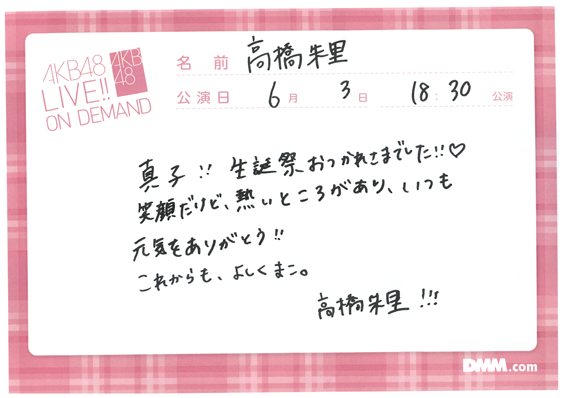 AKB48
LIVE!!
ON DEMAND
AKB
48
名前 高橋朱里
公演日 6月 3日 18:30 公演
真子!! 生誕祭おつかれさまでした!!♡
笑顔だけど、熱いところがあり、いつも
元気をありがとう!!
これからも、よしくまこ。
高橋朱里!!!
DMM.com